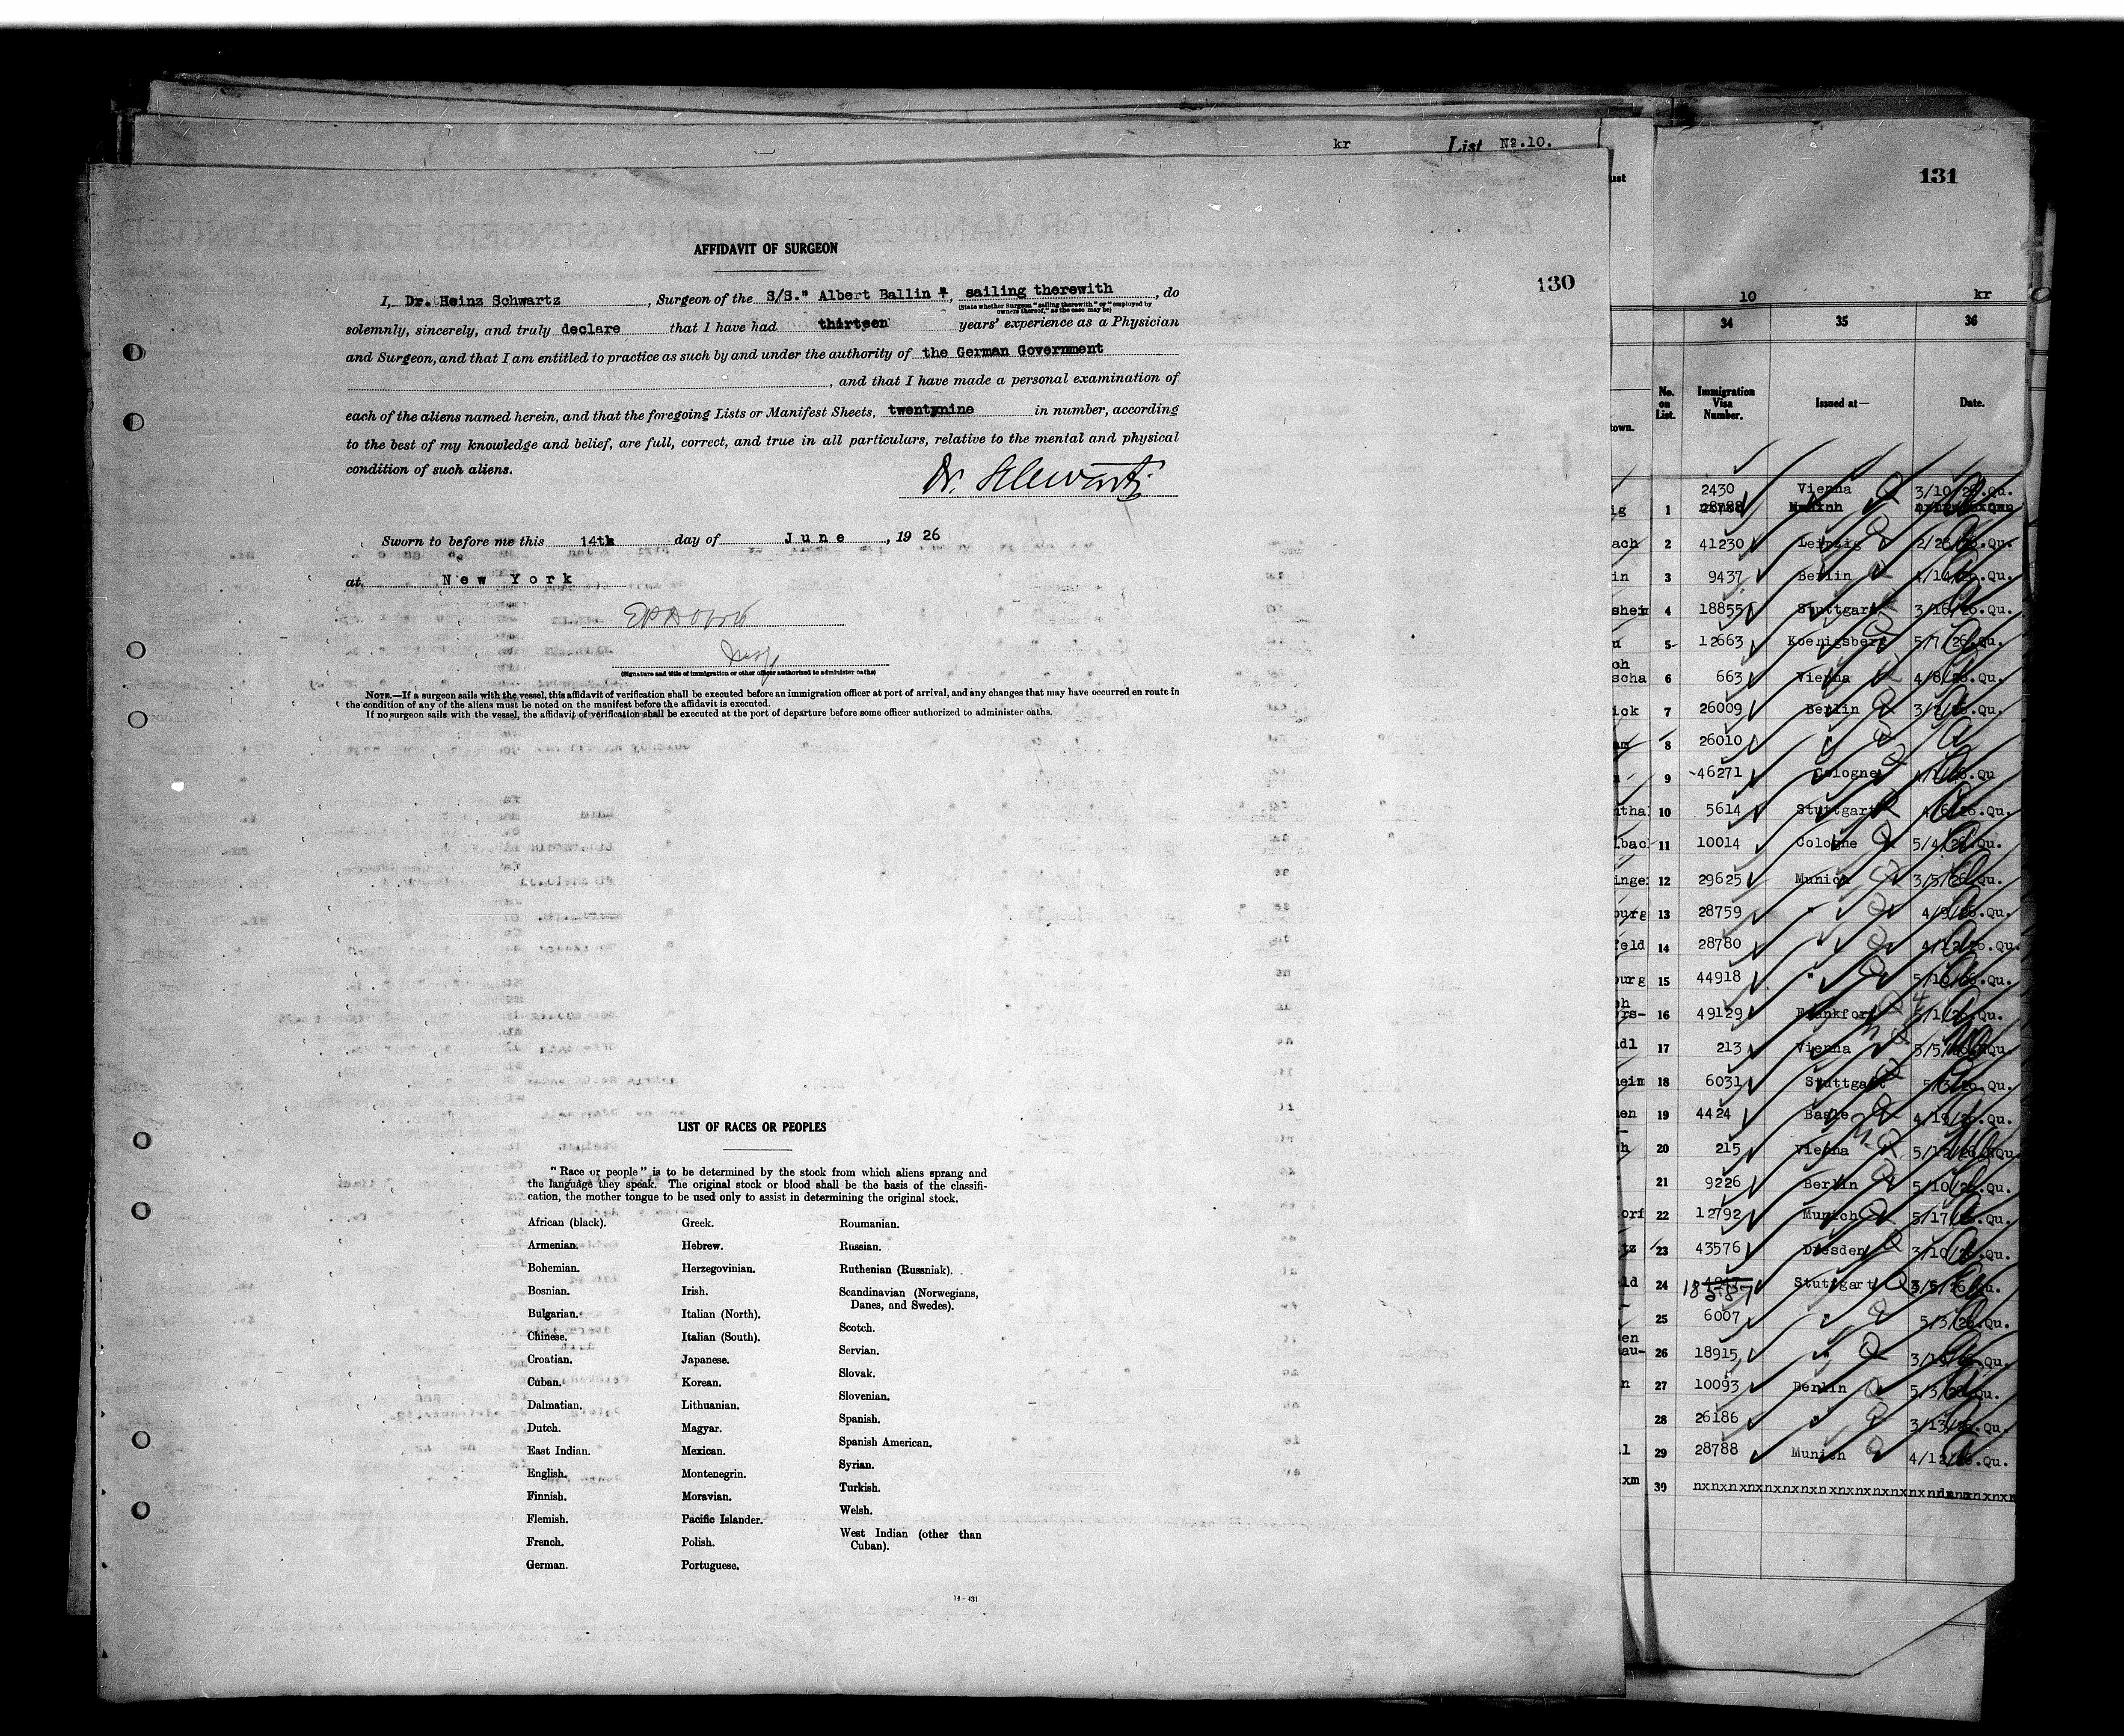 kr List No.10.
131
130
AFFIDAVIT OF SURGEON
I, Dr. Heinz Schwartz, Surgeon of the S/S." Albert Ballin ", sailing therewith, do
(State whether Surgeon "sailing therewith" or "employed by
owners thereof," as the case may be)
solemnly, sincerely, and truly declare that I have had thirteen years' experience as a Physician
and Surgeon, and that I am entitled to practice as such by and under the authority of the German Government
, and that I have made a personal examination of
each of the aliens named herein, and that the foregoing Lists or Manifest Sheets, twentynine in number, according
to the best of my knowledge and belief, are full, correct, and true in all particulars, relative to the mental and physical
condition of such aliens.
Dr. Schwartz
Sworn to before me this 14th day of June, 1926
at New York
Insp
(Signature and title of immigration or other officer authorized to administer oaths)
NOTE.—If a surgeon sails with the vessel, this affidavit of verification shall be executed before an immigration officer at port of arrival, and any changes that may have occurred en route in
the condition of any of the aliens must be noted on the manifest before the affidavit is executed.
If no surgeon sails with the vessel, the affidavit of verification shall be executed at the port of departure before some officer authorized to administer oaths.
LIST OF RACES OR PEOPLES
"Race or people" is to be determined by the stock from which aliens sprang and
the language they speak. The original stock or blood shall be the basis of the classifi-
cation, the mother tongue to be used only to assist in determining the original stock.
African (black).
Armenian.
Bohemian.
Bosnian.
Bulgarian.
Chinese.
Croatian.
Cuban.
Dalmatian.
Dutch.
East Indian.
English.
Finnish.
Flemish.
French.
German.
Greek.
Hebrew.
Herzegovinian.
Irish.
Italian (North).
Italian (South).
Japanese.
Korean.
Lithuanian.
Magyar.
Mexican.
Montenegrin.
Moravian.
Pacific Islander.
Polish.
Portuguese.
Roumanian.
Russian.
Ruthenian (Russniak).
Scandinavian (Norwegians,
Danes, and Swedes).
Scotch.
Servian.
Slovak.
Slovenian.
Spanish.
Spanish American.
Syrian.
Turkish.
Welsh.
West Indian (other than
Cuban).
14-431
10 kr
34 35 36
No. on List. Immigration Visa Number. Issued at— Date.
town.
2430 Vienna 3/10/26.Qu.
ig 1 28788
ach 2 41230 Leipzig 2/26/26.Qu.
in 3 9437 Berlin 4/14/26.Qu.
sheim 4 18855 Stuttgart 3/16/26.Qu.
u 5 12663 Koenigsberg 5/7/26.Qu.
ch
scha 6 663 Vienna 4/8/26.Qu.
ick 7 26009 Berlin 3/2/26.Qu.
am 8 26010 "
9 46271 Cologne 4/1/26.Qu
ntha 10 5614 Stuttgart 4/6/26.Qu.
lbac 11 10014 Cologne 5/4/26.Qu.
inge 12 29625 Munich 3/5/26.Qu.
burg 13 28759 " 4/9/26.Qu.
feld 14 28780 " 4/12/26.Qu.
burg 15 44918 " 5/10/26.Qu.
ch
rs- 16 49129 Frankfort 5/1/26.Qu.
dl 17 213 Vienna 5/5/26.NQu.
eim 18 6031 Stuttgart 5/3/26.Qu.
en 19 4424 Basle 4/19/26.Qu.
h 20 215 Vienna 5/12/26.NQu.
21 9226 Berlin 5/10/26.Qu.
orf 22 12792 Munich 5/17/26.Qu.
tz 23 43576 Dresden 3/10/26.Qu.
ld 24 18587 Stuttgart 3/5/26.Qu.
25 6007 " 5/3/26.Qu.
en
au- 26 18915 " 3/19/26.Qu.
n 27 10093 Berlin 5/3/26.Qu.
28 26186 " 3/13/26.Qu.
l 29 28788 Munich 4/12/26.Qu.
xm 30 nxnxnxnxnxnxnxnxnxnxnxnxnxnxnxnxn